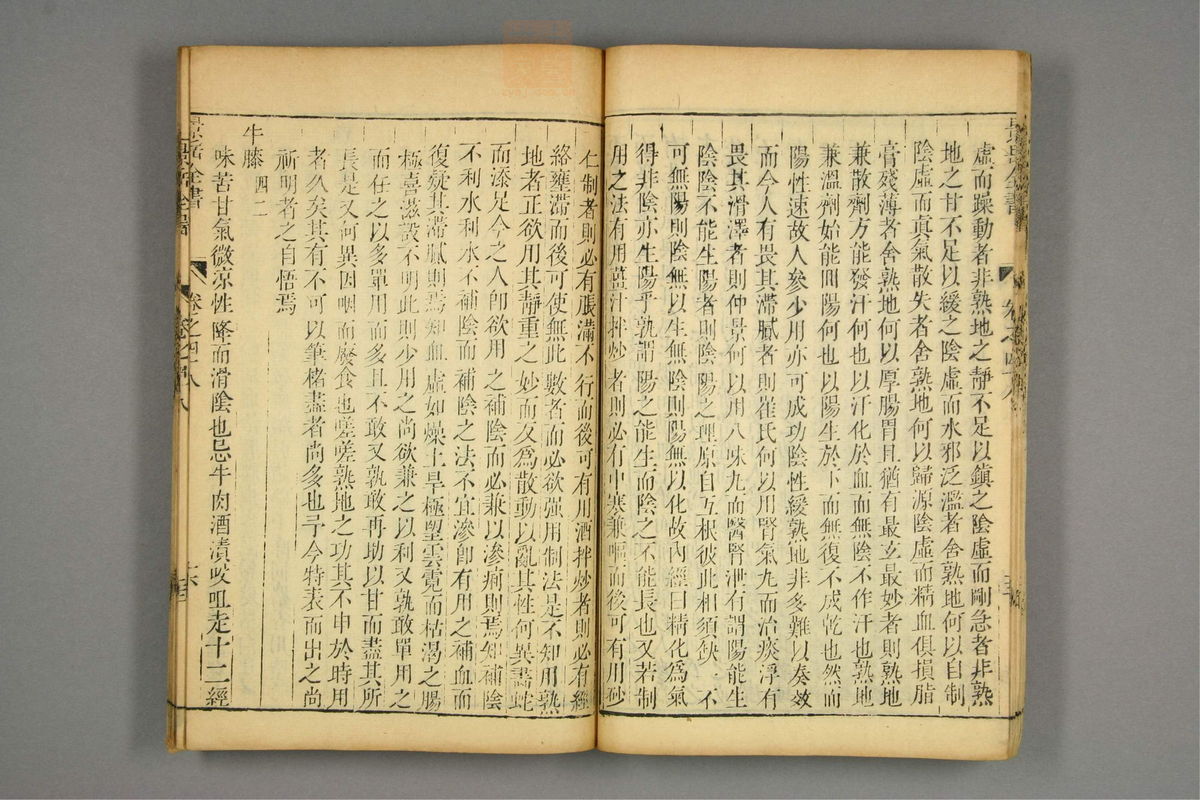 虛而躁動者非熟地之靜不足以鎮之陰虛而剛急者非熟
地之甘不足以緩之陰虛而水邪泛濫者舍熟地何以自制
陰虛而眞氣散失者舍熟地何以歸源陰虛而精血俱損脂
膏殘薄者舍熟地何以厚腸胃且猶有最玄最妙者則熟地
兼散劑方能發汗何也以汗化於血而無陰不作汗也熟地
兼溫劑始能回陽何也以陽生於下而無復不成乾也然而
陽性速故人參少用亦可成功陰性緩熟地非多難以奏效
而今人有畏其滯膩者則崔氏何以用腎氣丸而治痰浮有
畏其滑澤者則仲景何以用八味丸而醫腎泄有謂陽能生
陰陰不能生陽者則陰陽之理原自互根彼此相須缺一不
可無陽則陰無以生無陰則陽無以化故內經曰精化爲氣
得非陰亦生陽乎孰謂陽之能生而陰之不能長也又若制
用之法有用薑汁拌炒者則必有中寒兼嘔而後可有用砂
仁制者則必有脹滿不行而後可有用酒拌炒者則必有經
絡壅滯而後可使無此數者而必欲强用制法是不知用熟
地者正欲用其靜重之妙而反爲散動以亂其性何異畵蛇
而添足今之人卽欲用之補陰而必兼以滲痢則焉知補陰
不利水利水不補陰而補陰之法不宜滲卽有用之補血而
復疑其滯膩則焉知血虛如燥土旱極望雲霓而枯渴之腸
極喜滋設不明此則少用之尚欲兼之以利又孰敢單用之
而任之以多單用而多且不敢又孰敢再助以甘而盡其所
長是又何異因咽而廢食也嗟嗟熟地之功其不申於時用
者久矣其有不可以筆楮盡者尚多也予今特表而出之尚
祈明者之自悟焉
牛膝 四二
味苦甘氣微涼性降而滑陰也忌牛肉酒漬㕮咀走十二經
景岳全書
卷之四十八